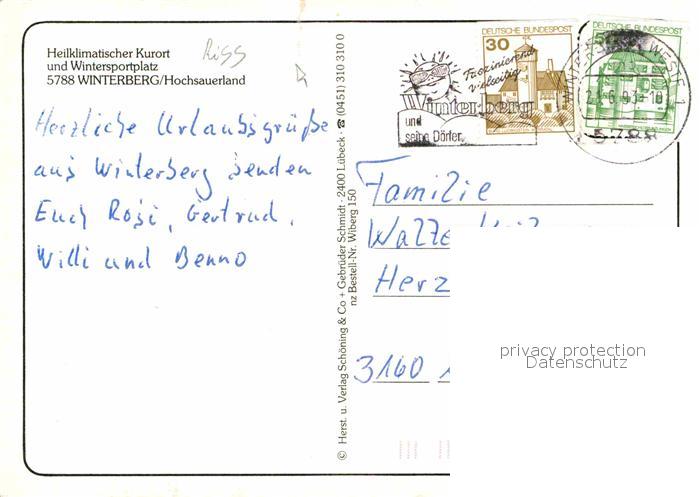 Heilklimatischer Kurort
und Wintersportplatz
5788 WINTERBERG/Hochsauerland
Riss
Herzliche Urlaubsgrüße
aus Winterberg senden
Euch Rosi, Gertrud,
Willi und Benno
© Herst. u. Verlag Schöning & Co + Gebrüder Schmidt · 2400 Lübeck · ☎ (0451) 310 310 0
nz Bestell-Nr. Wiberg 150
DEUTSCHE BUNDESPOST
30
DEUTSCHE BUNDESPOST
Faszinierend
vielseitig
Winterberg
und
seine Dörfer
5788
Familie
Herz
3160
privacy protection
Datenschutz